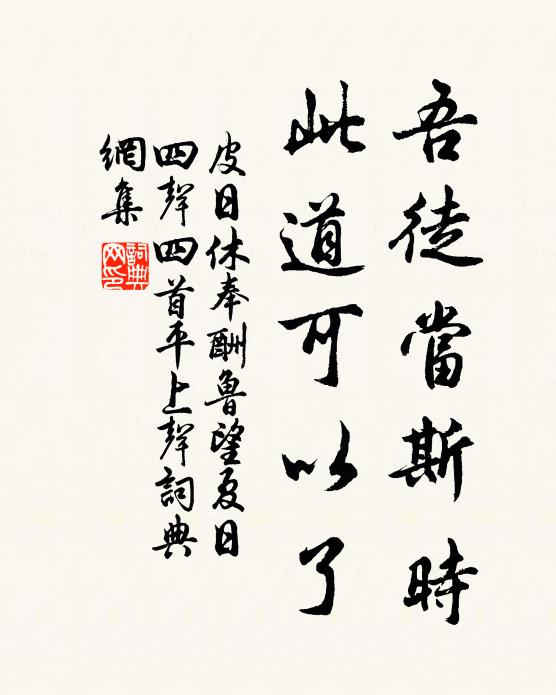 吾徒當斯時
此道可以了
皮日休奉酬魯望夏日
四聲四首平上聲詞典
網集
詞典
网印